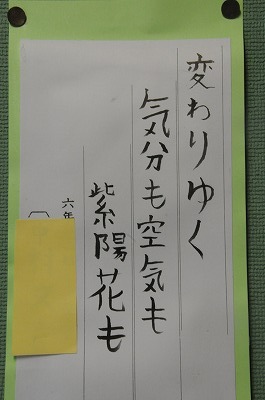 変わりゆく
気分も空気も
紫陽花も
六年